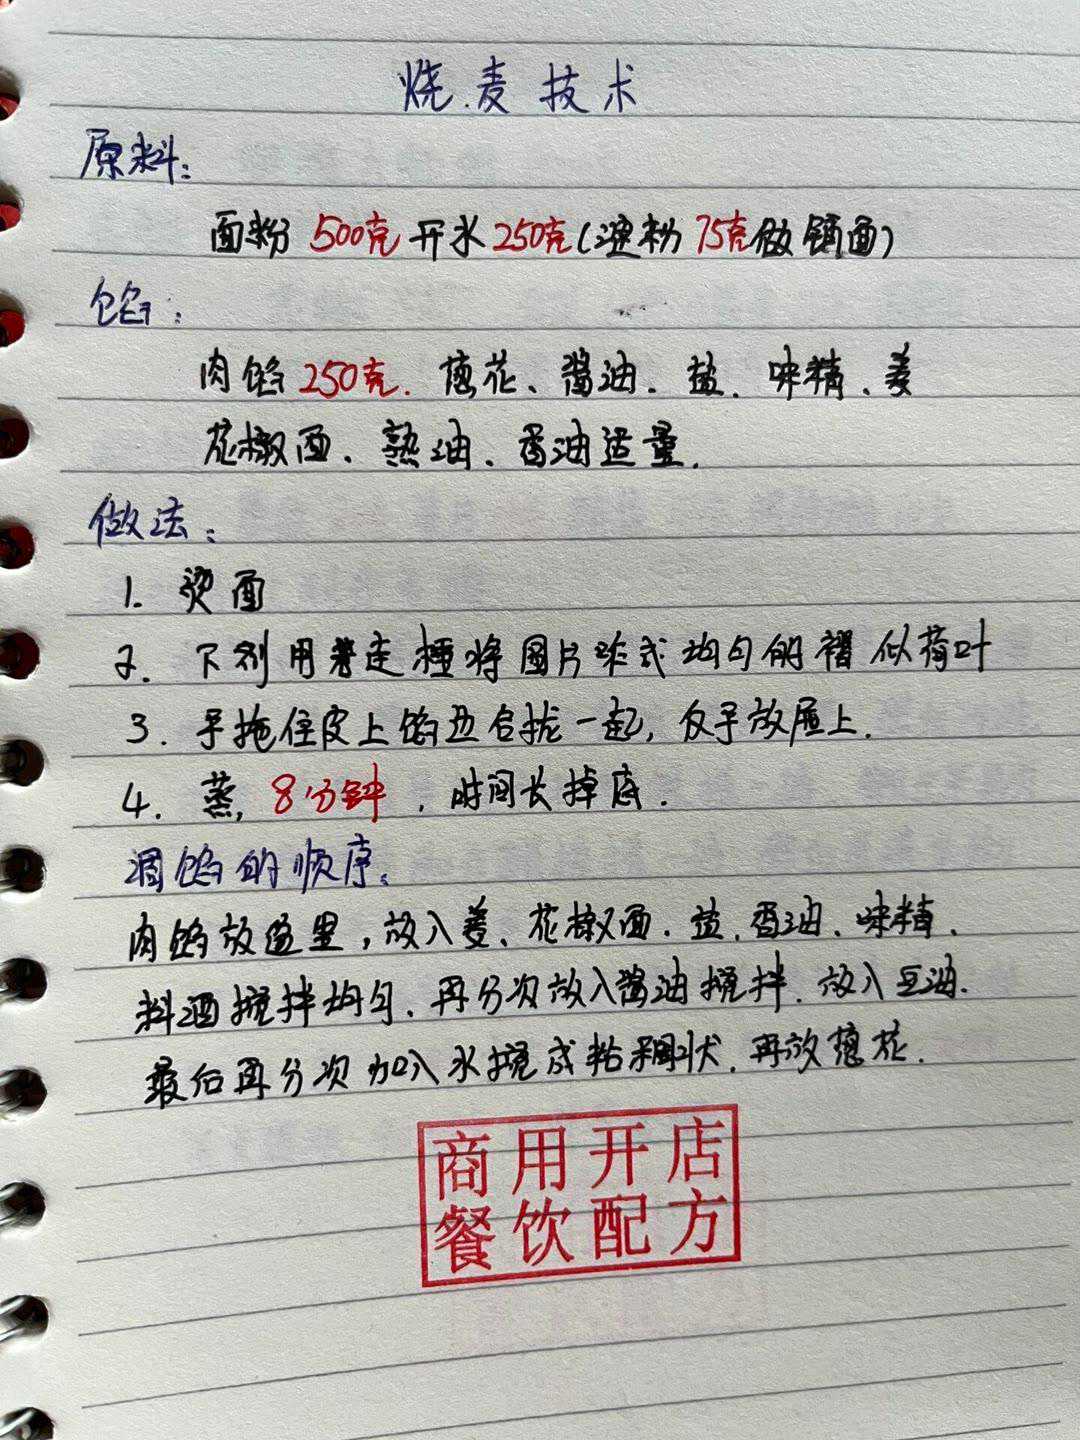 烧麦技术
原料:
面粉 500克 开水 250克(淀粉 75克做铺面)
馅:
肉馅 250克. 葱花、酱油. 盐. 味精、姜
花椒面、熟油、香油适量.
做法:
1. 烫面
2. 下剂用着走棰将图片 式均匀的褶似荷叶
3. 手拖住皮上馅边合拢一起, 反手放屉上.
4. 蒸, 8分钟 , 时间长掉底.
调馅的顺序:
肉馅放盆里, 放入姜、花椒面. 盐. 香油、味精、
料酒搅拌均匀. 再分次放入酱油搅拌. 放入豆油.
最后再分次加入水搅成粘稠状. 再放葱花.
商用开店
餐饮配方